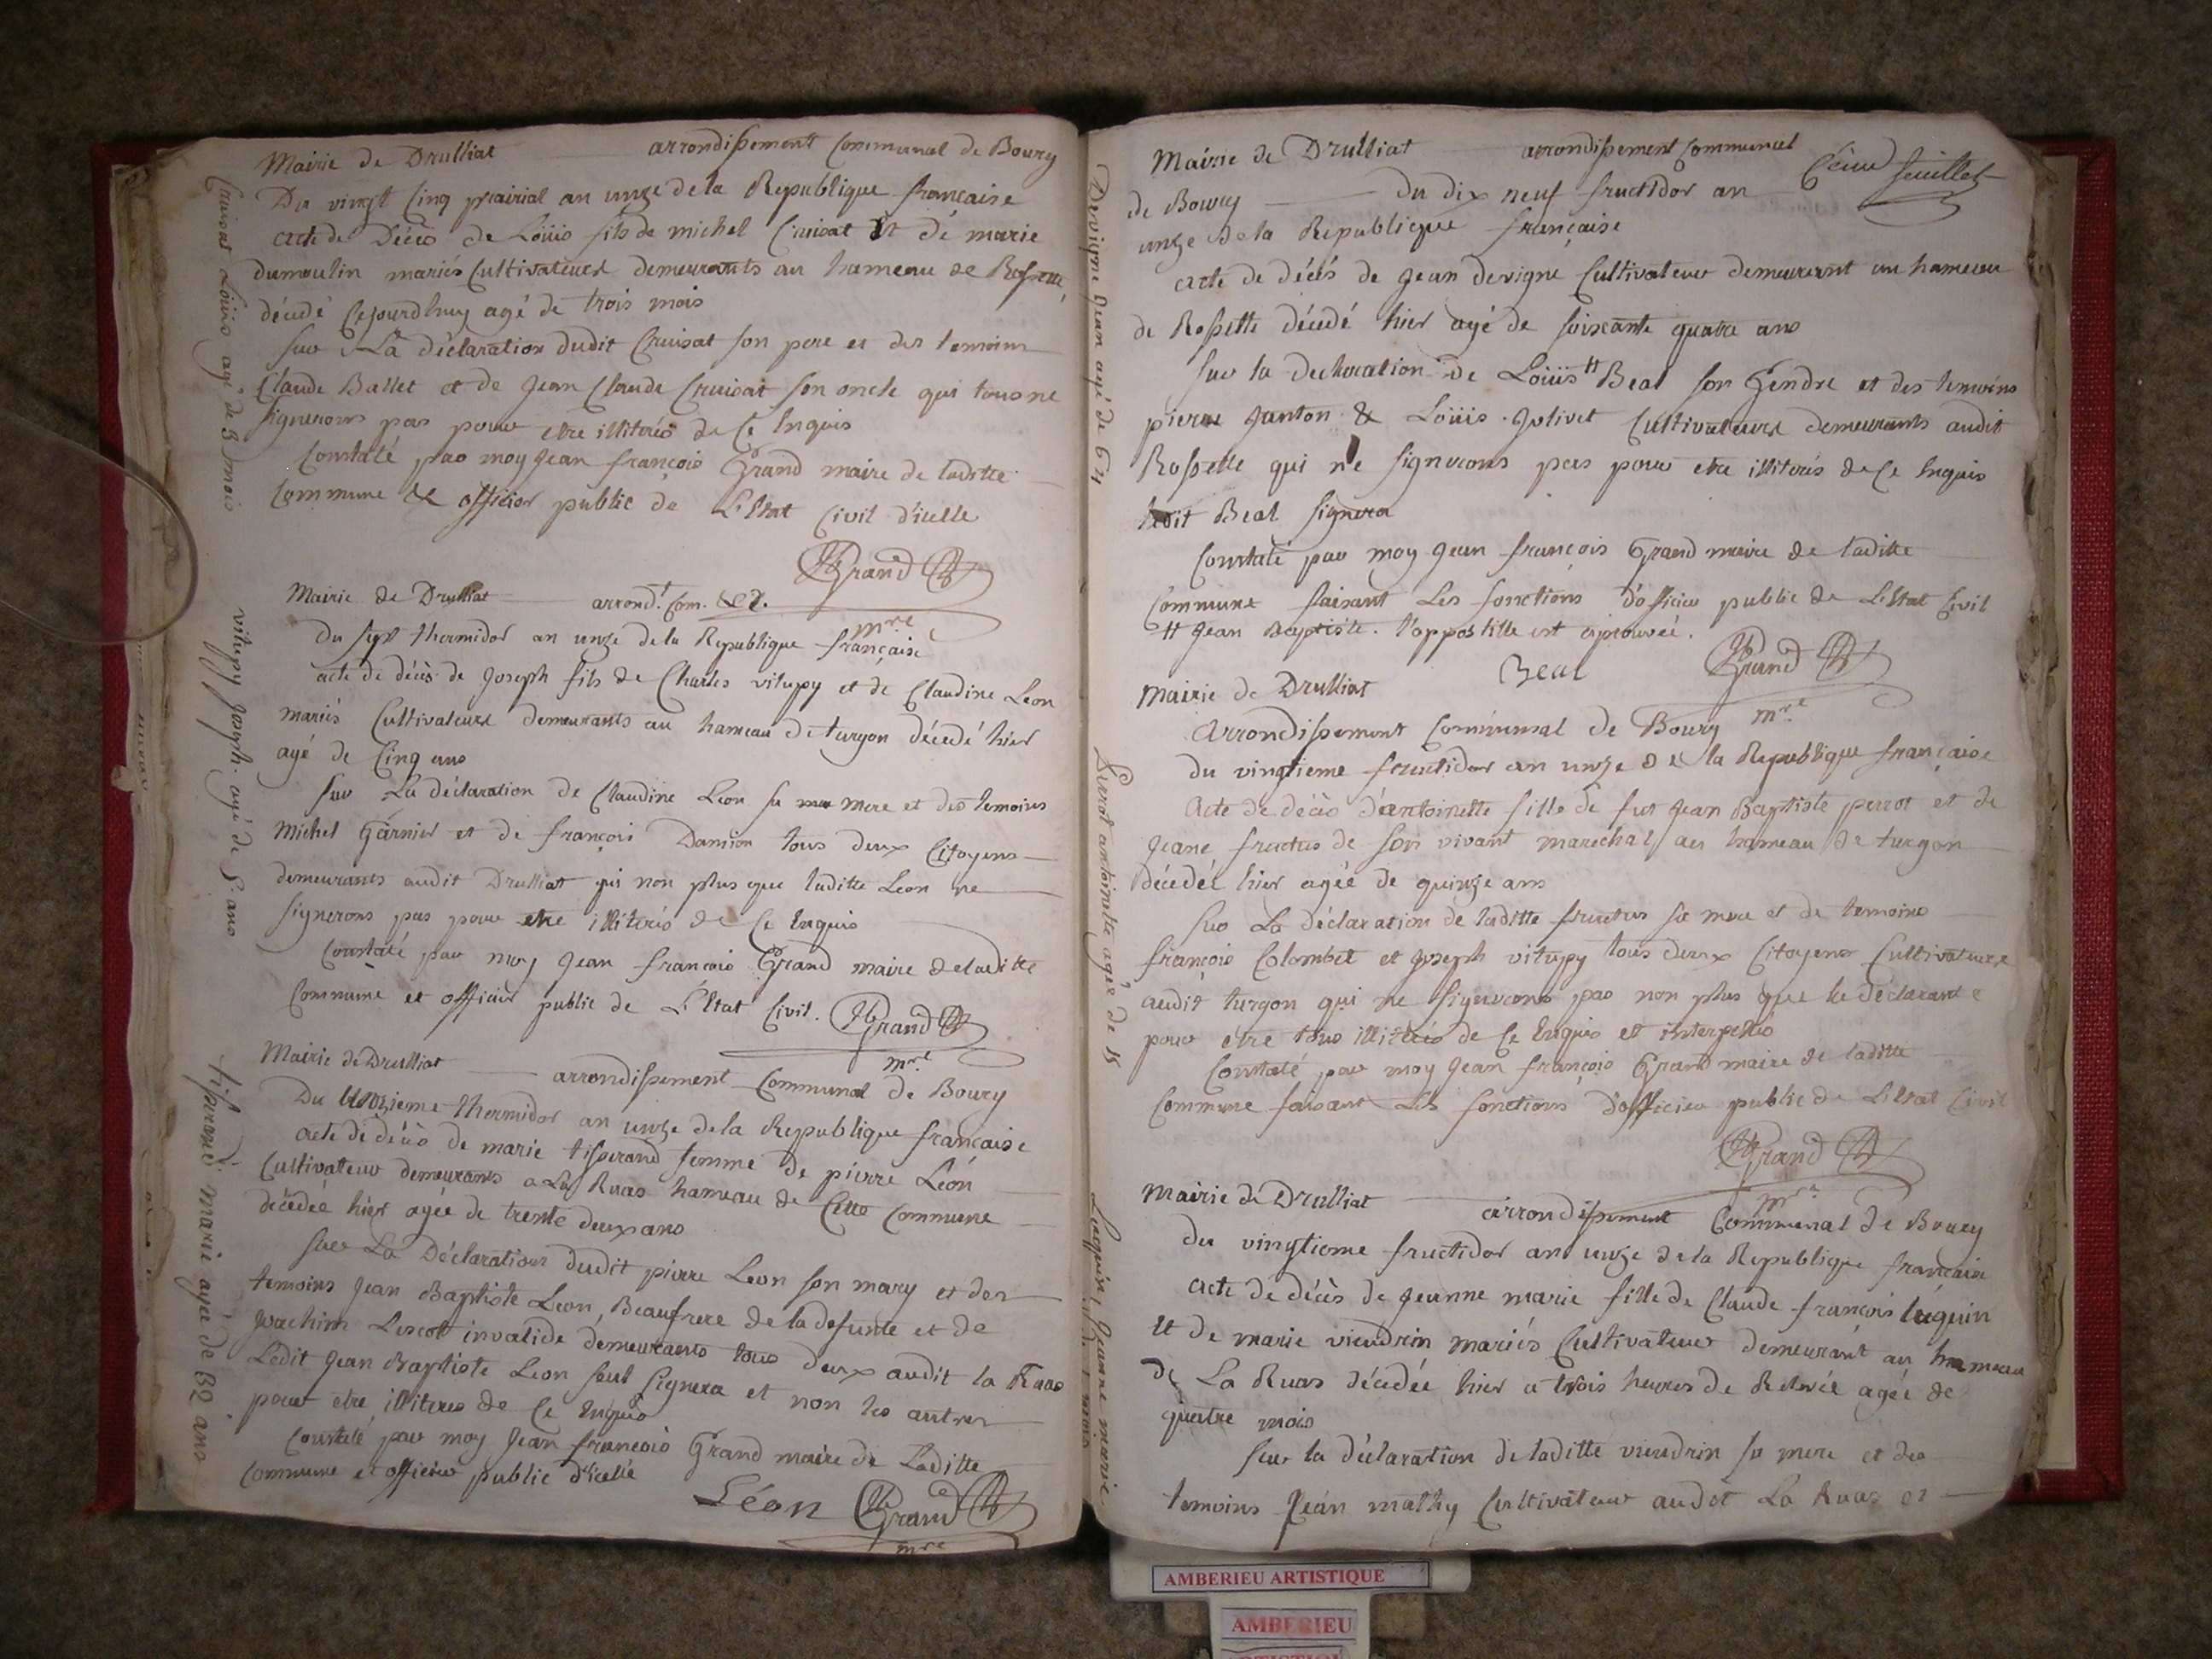 Mairie de Drulliat arrondissement Communal de Bourg
Du vingt Cinq prairial an unze de la Republique française
acte de Décès de Loüis fils de michel Cruisat Et de marie
dumoulin mariés Cultivateurs demeurants au hameau de Rossette
décédé Cejourdhuy agé de trois mois
Sur La déclaration dudit Cruisat son pere et des temoins
Claude Ballet et de Jean Claude Cruisat son oncle qui tous ne
signerons pas pour etre illiterés de Ce Enquis
Constaté par moy Jean françois Grand maire de laditte
Commune & officier public de L'Etat Civil d'icelle
Grand
mre
Cruisat Loüis agé de 3 mois
Mairie de Drulliat arrond.t Com. &&.
Du sept thermidor an unze de la Republique française
acte de décès de Joseph fils de Charles vitupy et de Claudine Leon
mariés Cultivateurs demeurants au hameau de turgon décédé hier
agé de Cinq ans
Sur La déclaration de Claudine Leon sa mere et des temoins
Michel Garnier et de françois Damion tous deux Citoyens
demeurants audit Drulliat qui non plus que laditte Leon ne
signerons pas pour etre illiterés de Ce Enquis
Constaté par moy Jean françois Grand maire de laditte
Commune et officier public de L'Etat Civil. Grand
mre
vitupy Joseph. agé de 5. ans
Mairie de Drulliat arrondissement Communal de Bourg
Du thermidor an unze de la Republique française
acte de décès de marie tisserand femme de pierre Léon
Cultivateur demeurants a La Ruas hameau de Cette Commune
décédée hier agée de trente deux ans
Sur La Déclaration dudit pierre Leon son mary et des
temoins Jean Baptiste Leon, Beaufrere de la defunte et de
Joachim Lescot invalide demeurants tous deux audit la Ruas
Ledit Jean Baptiste Leon seul signera et non les autres
pour etre illiteres de Ce Enquis
Constaté par moy Jean françois Grand maire de Laditte
Commune et officier public d'icelle
Léon Grand
mre
tisserand marie agée de 32 ans
Mairie de Drulliat arrondissement Communal
feuillet
de Bourg Du dix neuf fructidor an
unze de la Republique française
acte de décès de Jean devigne Cultivateur demeurant au hameau
de Rossette décédé hier agé de soixante quatre ans
Sur la declaration de Loüis # Beal son Gendre et des temoins
pierre Janton & Loüis Jolivet Cultivateurs demeurants audit
Rossette qui ne signerons pas pour etre illiterés de Ce Enquis
ledit Beal signera
Constaté par moy Jean françois Grand maire de laditte
Commune faisant Les fonctions d'officier public de L'Etat Civil
# Jean Baptiste. l'appostille est aprouvée.
Beal Grand
mre
Devigne Jean agé de 64
Mairie de Drulliat
Arrondissement Communal de Bourg
du vingtieme fructidor an unze de la Republique française
Acte de décès d'antoinette fille de fut Jean Baptiste perrot et de
Jeane fructus de son vivant marechal au hameau de turgon
décédée hier agée de quinze ans
Sur La déclaration de laditte fructus sa mere et de temoins
françois Colombet et Joseph vitupy tous deux Citoyens Cultivateurs
audit turgon qui ne signerons pas non plus que la déclarante
pour etre tous illiterés de Ce Enquis et interpellés
Constaté par moy Jean françois Grand maire de laditte
Commune faisant Les fonctions d'officier public de L'Etat Civil
Grand
mre
Perrot antoinette agée de 15
Mairie de Drulliat arrondissement Communal de Bourg
du vingtieme fructidor an unze de la Republique française
acte de décès de Jeanne marie fille de Claude françois luquin
Et de marie vieudrin mariés Cultivateur demeurant au hameau
de La Ruas décédée hier a trois heures de Relevée agée de
quatre mois
Sur la déclaration de laditte vieudrin sa mere et des
temoins Jean mathy Cultivateur audit La Ruas et
Jeanne marie
AMBERIEU ARTISTIQUE
AMBERIEU